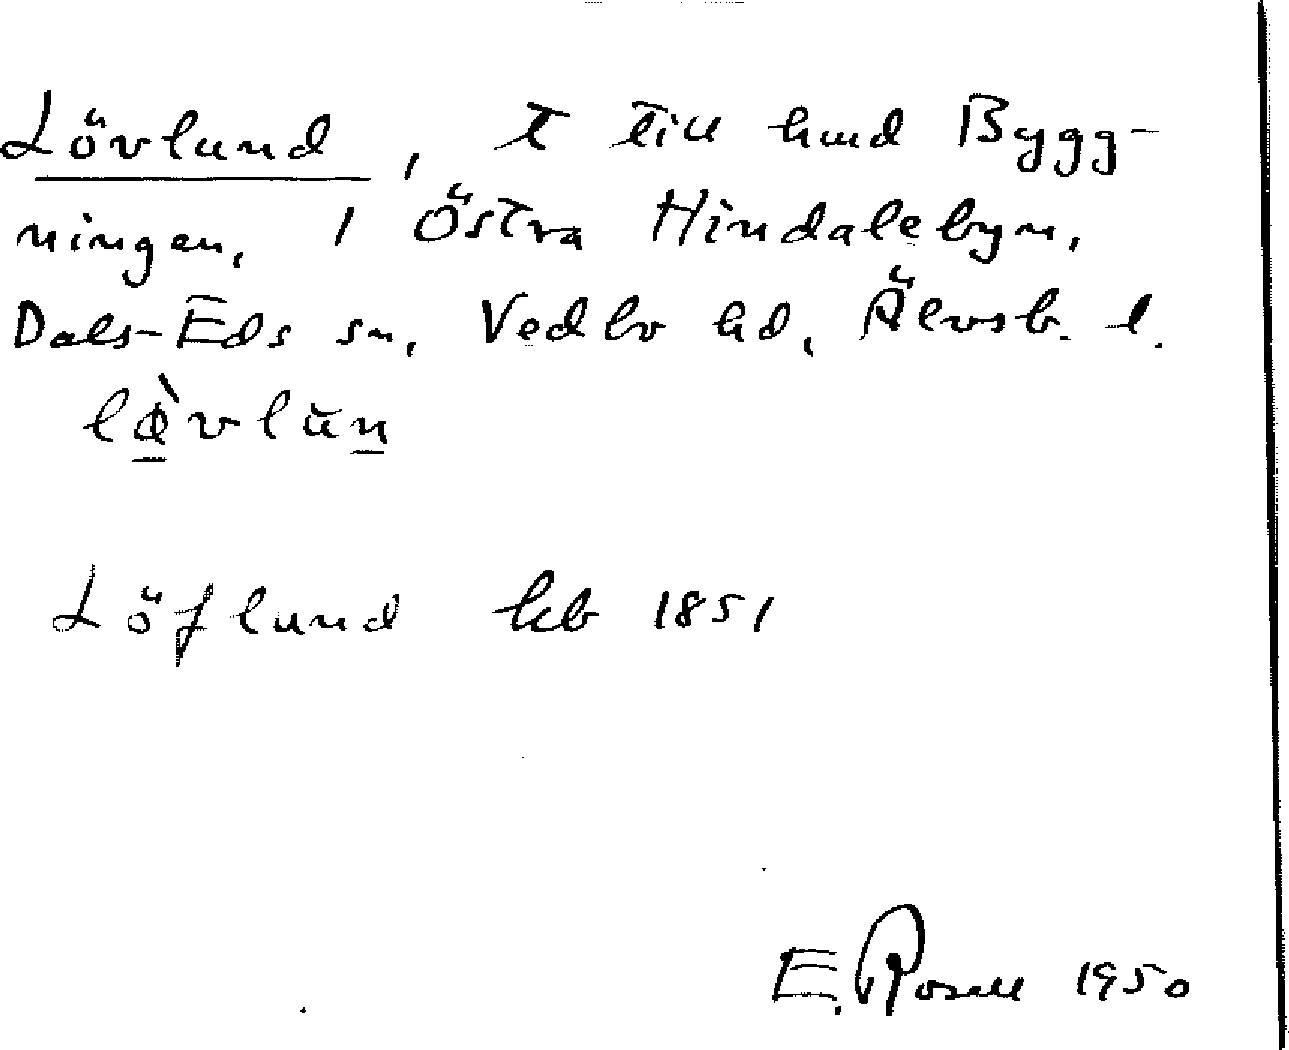 Lövlund, t till hmd Bygg-
ningen, i Östra Hindalebyn,
Dals-Eds sn, Vedbo hd, Älvsb. l.
lø̀vlŭn
Löflund kb 1851
E. Rosell 1950